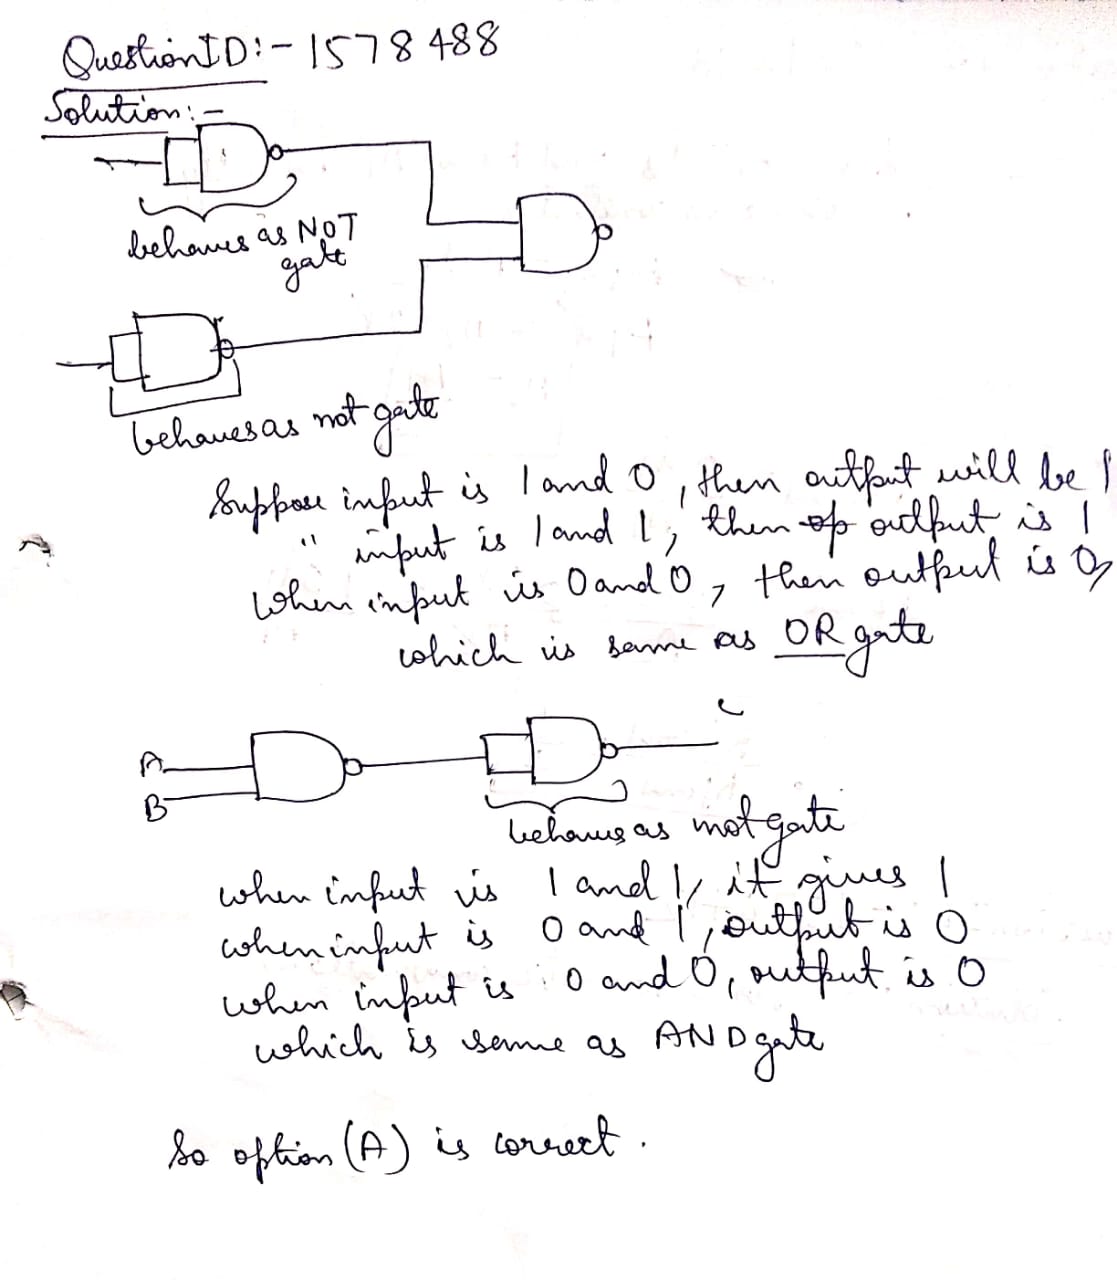 QuestionID:- 1578488
Solution:-
behaves as NOT
gate
behaves as not gate
Suppose input is 1 and 0, then output will be 1
" input is 1 and 1, then output is 1
When input is 0 and 0, then output is 0,
which is same as OR gate
C
A
B
behaves as not gate
when input is 1 and 1, it gives 1
when input is 0 and 1, output is 0
when input is 0 and 0, output is 0
which is same as AND gate
So option (A) is correct.